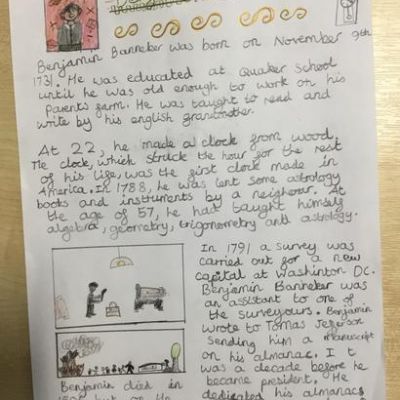 Benjamin Banneker was born on November 9th
1731. He was educated at Quaker School
until he was old enough to work on his
Parents farm. He was taught to read and
write by his english grandmother.
At 22, he made a clock from wood.
The clock, which struck the hour for the rest
of his life, was the first clock made in
America. In 1788, he was lent some astrology
books and instruments by a neighour. At
the age of 57, he had taught himself
algebra, geometry, trigonometry and astrology.
In 1791 a survey was
carried out for a new
capital at Washinton DC.
Benjamin Banneker was
an assistant to one of
the surveyours. Benjamin
wrote to Tomas Jefferson
Sending him a manuscript
on his almanac. It
was a decade before he
became president. He
dedicated his almanac
Benjamin died in
but on the